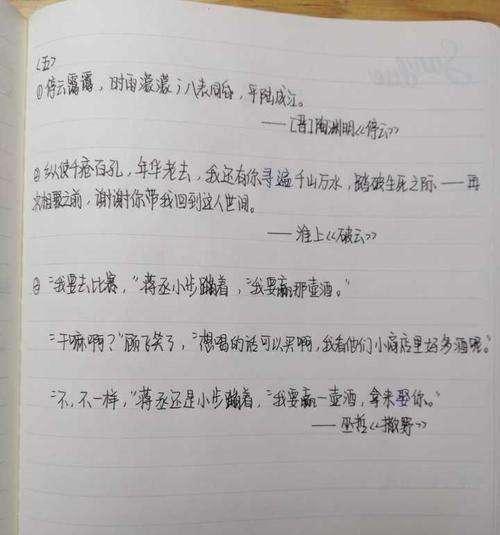 (五)
①停云霭霭，时雨濛濛；八表同昏，平陆成江。
——[晋]陶渊明《停云》
②纵使千疮百孔，年华老去，我还有你寻遍千山万水，踏破生死之际——再
次相聚之前，谢谢你带我回到这人世间。
——淮上《破云》
③"我要去比赛，"蒋丞小步蹦着，"我要赢那壶酒。"
"干嘛啊？"顾飞笑了，"想喝的话可以买啊，我看他们小商店里好多酒呢。"
"不，不一样，"蒋丞还是小步蹦着，"我要赢一壶酒，拿来娶你。"
——巫哲《撒野》